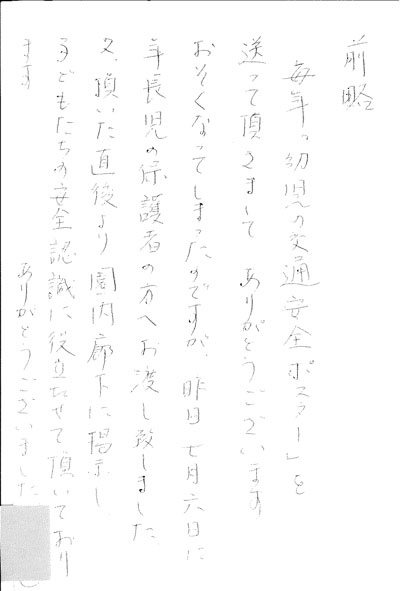 前略
毎年「幼児の交通安全ポスター」を
送って頂きまして ありがとうございます
おそくなってしまったのですが、昨日七月六日に
年長児の保護者の方へお渡し致しました
又、頂いた直後より園内廊下に掲示し、
子どもたちの安全認識に役立たせて頂いており
ます
ありがとうございました